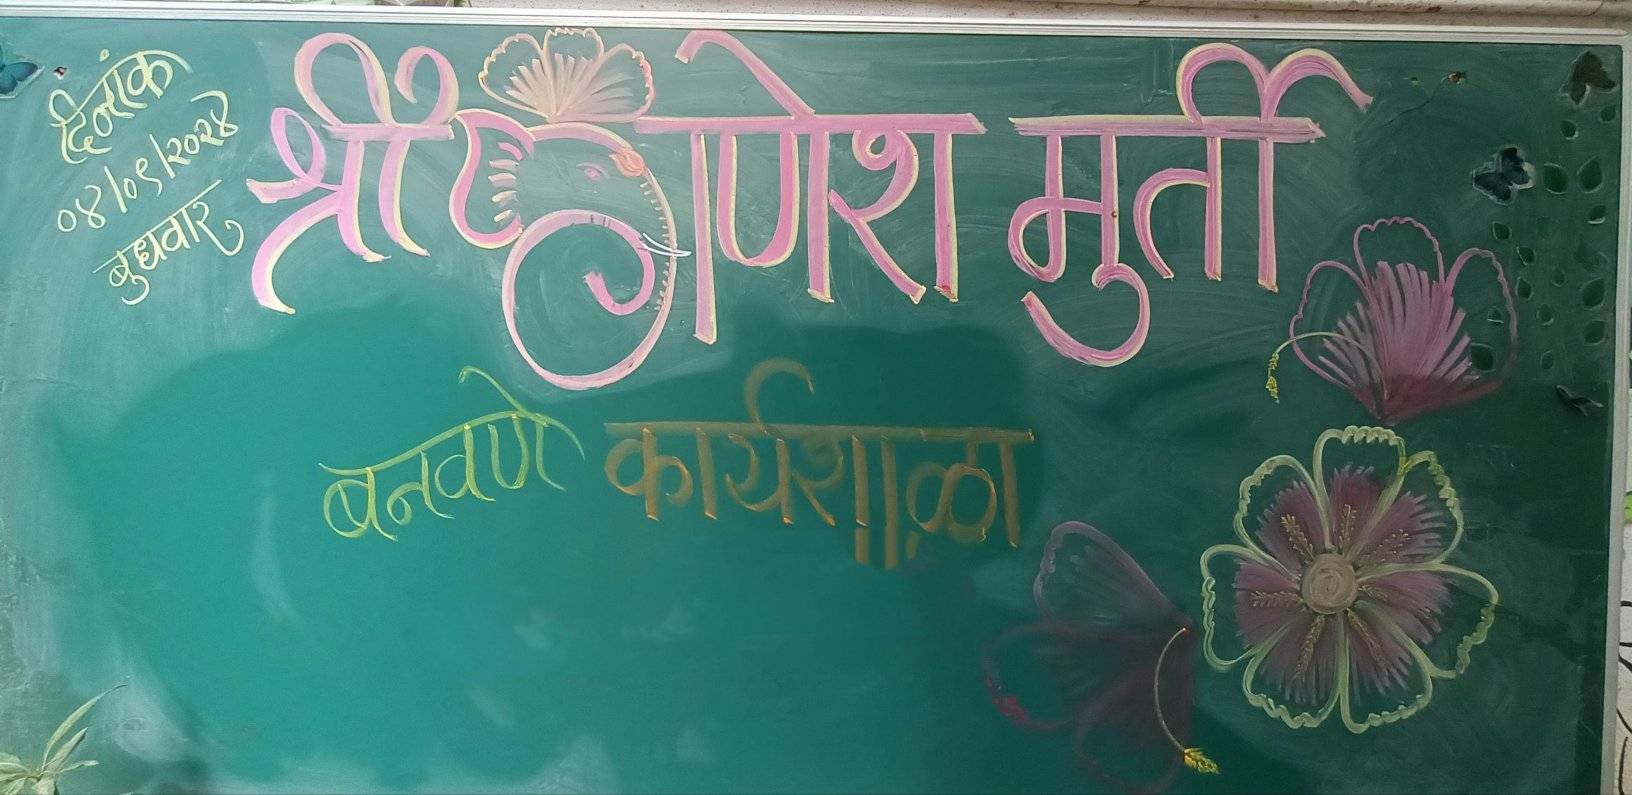 दिनांक
०४/०९/२०२४
बुधवार
श्री गणेश मुर्ती
बनवणे कार्यशाळा